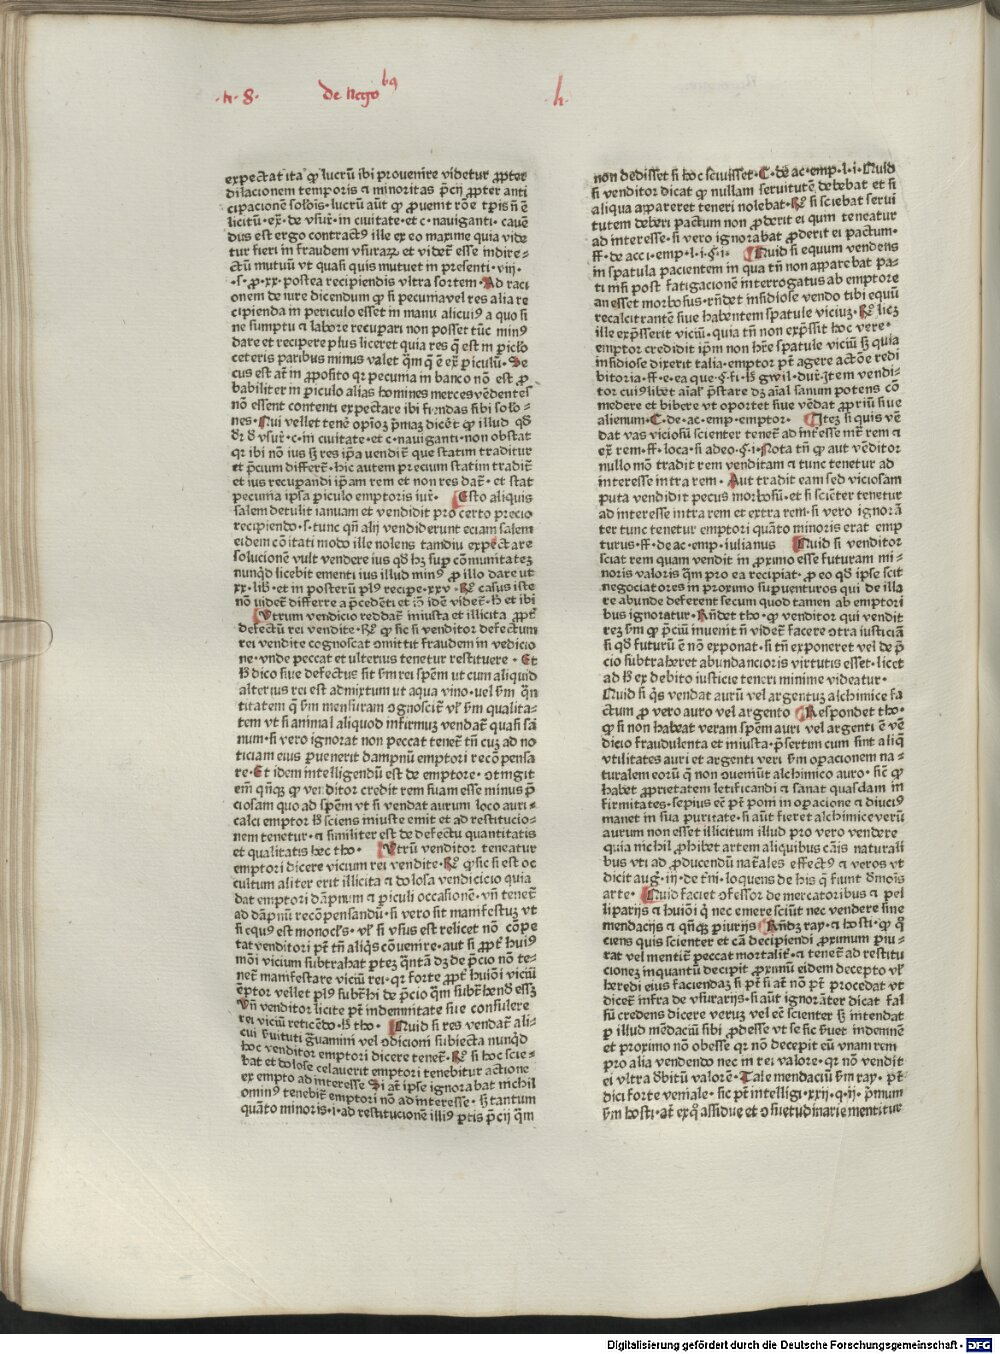 ·n·8· de Nego bꝯ h·
expectat ita ꝙ lucrū ibi prouenire videtur ꝓpter
dilacionem temporis ⁊ minoritas p̄cij ꝓpter anti
cipacionē solōis· lucrū aūt ꝙ ꝓuenit rōe tp̄is n̄ ē
licitū· ex̄· de vsur̄· in ciuitate et c· nauiganti· cauē
dus est ergo contractꝯ ille ex eo maxime quia vide
tur fieri in fraudem vsuraꝝ et videt᷑ esse indire⸗
ctū mutuū vt quasi quis mutuet in presenti· viij·
·s· ꝓ ·xx· postea recipiendis vltra sortem· Ad raci
onem de iure dicendum ꝙ si pecuniavel res alia re
cipienda in periculo esset in manu alicuiꝯ a quo si
ne sumptu ⁊ labore recupari non posser tūc minꝯ
dare et recipere plus liceret quia res q̄ est in piclo
ceteris paribus minus valet qm̄ q̄ ē ex̄ piculū· Se
cus est at̄ in ꝓposito qr pecunia in banco nō est ꝓ
babiliter in piculo alias homines merces vēdentes
nō essent contenti expectare ibi fiendas sibi solo⸗
nes· Qui vellet tenē opioꝫ p̄maꝫ dicēt ꝙ illud qd̄
dr̄ d̄ vsur̄· c· in ciuitate· et c· nauiganti· non obstat
qr ibi nō ius ꝫ res ip̄a vendit᷑ que statim traditur
et p̄cium differt᷑· hic autem precium statim tradit᷑
et ius recupandi ip̄am rem et non res dat᷑· et stat
pecunia ipsa piculo emptoris iur̄· Esto aliquis
salem detulit ianuam et vendidit pro certo precio
recipiendo· s· tunc qn̄ alij vendiderunt eciam salem
eidem cōitati modo ille nolens tamdiu expectare
solucionē vult vendere ius qd̄ hꝫ sup cōmunitateꝫ
nunqd̄ licebit ementi ius illud minꝯ ꝓ illo dare ut
xx· lib᷑· et in posterū plꝯ recipe· xxv· Rͦ casus iste
nō videt᷑ differre a p̄cedēti et iō idē videt᷑· hͨ et ibi
Utrum vendicio reddat᷑ iniusta et illicita ꝓpt᷑
defectū rei vendite· Rͦ ꝙ sic si venditor defectum
rei vendite cognoscat ⁊mittit fraudem in vendicio
ne· vnde peccat et ulterius tenetur restituere· Et
hͨ dico siue defectus sit ẜm rei spēm ut cum aliquid
alterius rei est admixtum ut aqua vino· vel ẜm q̄n
titatem q̄ ẜm mensuram ↄgnoscit᷑ vl̓ ẜm qualita⸗
tem vt si animal aliquod infirmuꝫ vendat᷑ quasi sa
num· si vero ignorat non peccat tenet᷑ tn̄ cuꝫ ad no
ticiam eius ꝑuenerit dampnū emptori recō pensa
re· Et idem intelligendū est de emptore· ↄtingit
em̄ qn̄qꝫ ꝙ venditor credit rem suam esse minus p̄
ciosam quo ad spēm vt si vendat aurum loco auri⸗
calci emptor hͨ sciens iniuste emit et ad restitucio⸗
nem tenetur· ⁊ similiter est de defectu quantitatis
et qualitatis hec tho· Utrū venditor teneatur
emptori dicere vicium rei vendite· Rͦ ꝙ sic si est oc
cultum aliter erit illicita ⁊ dolosa vendicicio quia
dat emptori dāpnum ⁊ piculi occasionē· vn̄ tenet᷑
ad dāpnū recōpensandū· si vero sit manifestuꝫ vt
si equꝯ est monocls̄· vl̓ si vsus est relicet nō cōpe
tat venditori pt̄ tn̄ aliq̄s cōuenire· aut si ꝓpt᷑ huiꝯ
mōi vicium subtrahat pteꝫ q̄ntā dꝫ de p̄cio nō te⸗
net᷑ manifestare viciū rei· qr forte ꝓpt᷑ huiōi viciū
ēptor vellet plꝯ subt᷑hi de p̄cio qm̄ subt᷑hend̄ eēꝫ
Vn̄ venditor licite pt̄ indemnitate sue consulere
rei viciū reticēdo· hͨ tho· Quid si res vendat᷑ ali⸗
cui ẜuituti grauamini vel ↄdicioni subiecta nunqd̄
hoc venditor emptori dicere tenet᷑· Rͦ si hoc scie⸗
bat et dolose celauerit emptori tenebitur actione
ex empto ad interesse Si at̄ ipse ignorabat nichil
ominꝯ tenebit᷑ emptori nō ad interesse· ꝫ tantum
quāto minoris· i· ad restitucionē illiꝯ ptis p̄cij qm̄
non dedisset si hoc sciuisset· C· de ac· emp· l· i· Quid
si venditor dicat ꝙ nullam seruitutē debebat et si
aliqua appareret teneri nolebat· Rͦ si sciebat serui
tutem deberi pactum non ꝓderit ei qum teneatur
ad interesse· si vero ignorabat ꝓderit ei pactum·
ff· de acci· emp· l· i· §· i· Quid si equum vendens
in spatula pacientem in qua tn̄ non apparebat pa⸗
ti nisi post fatigacionē interrogatus ab emptore
an esset morbosus· rn̄det insidiose vendo tibi equū
recalcitrantē siue habentem spatule viciuꝫ· Rͦ licꝫ
ille exp̄sserit viciū· quia tn̄ non exp̄ssit hoc vere·
emptor credidit ip̄m non hr̄e spatule viciū ꝫ quia
insidiose dixerit talia· emptor pt̄ agere actōe redi
bitoria· ff· e· ea que· §· fi· hͨ gwil· dur̄· Item vendi⸗
tor cuiꝯlibet aīal̓ p̄stare dꝫ aīal sanum potens cō
medere et bibere vt oportet siue vēdat ꝓpriū siue
alienum· C· de· ac· emp· emptor· Iteꝫ si quis vē
dat vas viciosū scienter tenet᷑ ad int᷑esse int᷑ rem ⁊
ex̄ rem· ff· loca· si adeo· §· i· Nota tn̄ ꝙ aut vēditor
nullo mō tradit rem venditam ⁊ tunc tenetur ad
interesse intra rem· Aut tradit eam sed viciosam
puta vendidit pecus morbosū· et si sciēter tenetur
ad interesse intra rem et extra rem· si vero ignorā
ter tunc tenetur emptori quāto minoris erat emp
turus· ff· de ac· emp· iulianus Quid si venditor
sciat rem quam vendit in ꝓximo esse futuram mi⸗
noris valoris qm̄ pro ea recipiat· ꝓ eo qd̄ ipse scit
negociatores in proximo supuenturos qui de illa
re abunde deferent secum quod tamen ab emptori
bus ignoratur· Rn̄det tho· ꝙ venditor qui vendit
reꝫ ẜm ꝙ p̄ciū inuenit n̄ videt᷑ facere ↄtra iusticiā
si qd̄ futurū ē nō exponat· si tn̄ exponeret vel de p̄
cio subtraheret abundancioris virtutis esset· licet
ad hͨ ex debito iusticie teneri minime videatur·
Quid si q̄s vendat aurū vel argentuꝫ alchimice fa
ctum ꝓ vero auro vel argento Respondet tho·
ꝙ si non habeat veram spēm auri vel argenti ē vē
dicio fraudulenta et iniusta· p̄sertim cum sint aliq̄
vtilitates auri et argenti veri ẜm opacionem na⸗
turalem eorū q̄ non ↄueniūt alchimico auro· sic̄ ꝙ
habet ꝓprietatem letificandi ⁊ sanat quasdam in
firmitates· sepius eē pt̄ poni in opacione ⁊ diuciꝯ
manet in sua puritate· si aūt fieret alchimice verū
aurum non esset illicitum illud pro vero vendere
quia nichil ꝓhibet artem aliquibus cāis naturali
bus vti ad ꝓducendū nat᷑ales effectꝯ ⁊ veros vt
dicit aug̓· iij· de tn̄i· loquens de his q̄ fiunt d̄monis
arte· Quid faciet ↄfessor de mercatoribus ⁊ pel
liparijs ⁊ huiōi q̄ nec emere sciūt nec vendere sine
mendacijs ⁊ qn̄qꝫ piurijs Rn̄dꝫ ray· ⁊ hosti· ꝙ q̄
ciens quis scienter et cā decipiendi ꝓximum piu⸗
rat vel mentit᷑ peccat mortalit᷑· ⁊ tenet᷑ ad restitu
cioneꝫ inquantū decipit ꝓximū eidem decepto vl̓
heredi eius faciendaꝫ si pt̄ si at̄ nō pt̄ procedat vt
dicet᷑ infra de vsurarijs· si aūt ignorāter dicat fal
sū credens dicere veruꝫ vel eē scienter ꝫ intendat
ꝑ illud mēdaciū sibi ꝓdesse vt se sic ẜuet indemnē
et proximo nō obesse qr nō decepit eū vnam rem
pro alia vendendo nec in rei valore· qr nō vendit
ei vltra d̄bitū valorē· Tale mendaciū ẜm ray· pt̄
dici forte veniale· sic pt̄ intelligi· xxij· q· ij· p̄mum
ẜm hosti· at̄ exqͦ assidue et ↄsuetudinarie mentitur
Digitalisierung gefördert durch die Deutsche Forschungsgemeinschaft · DFG